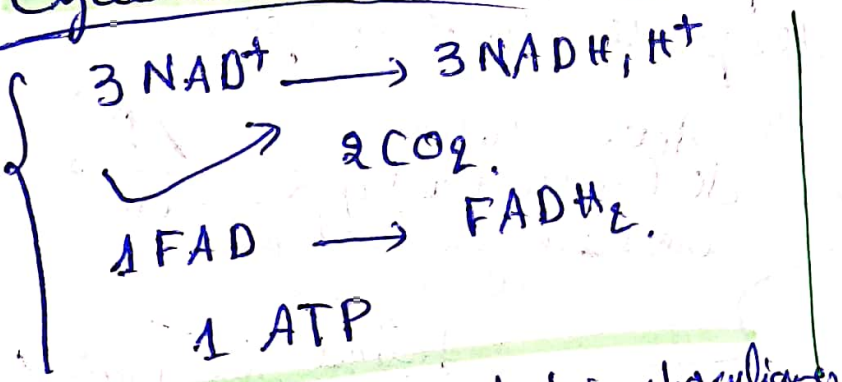 3 NAD+ → 3 NADH, H+
2CO2.
1 FAD → FADH2.
1 ATP